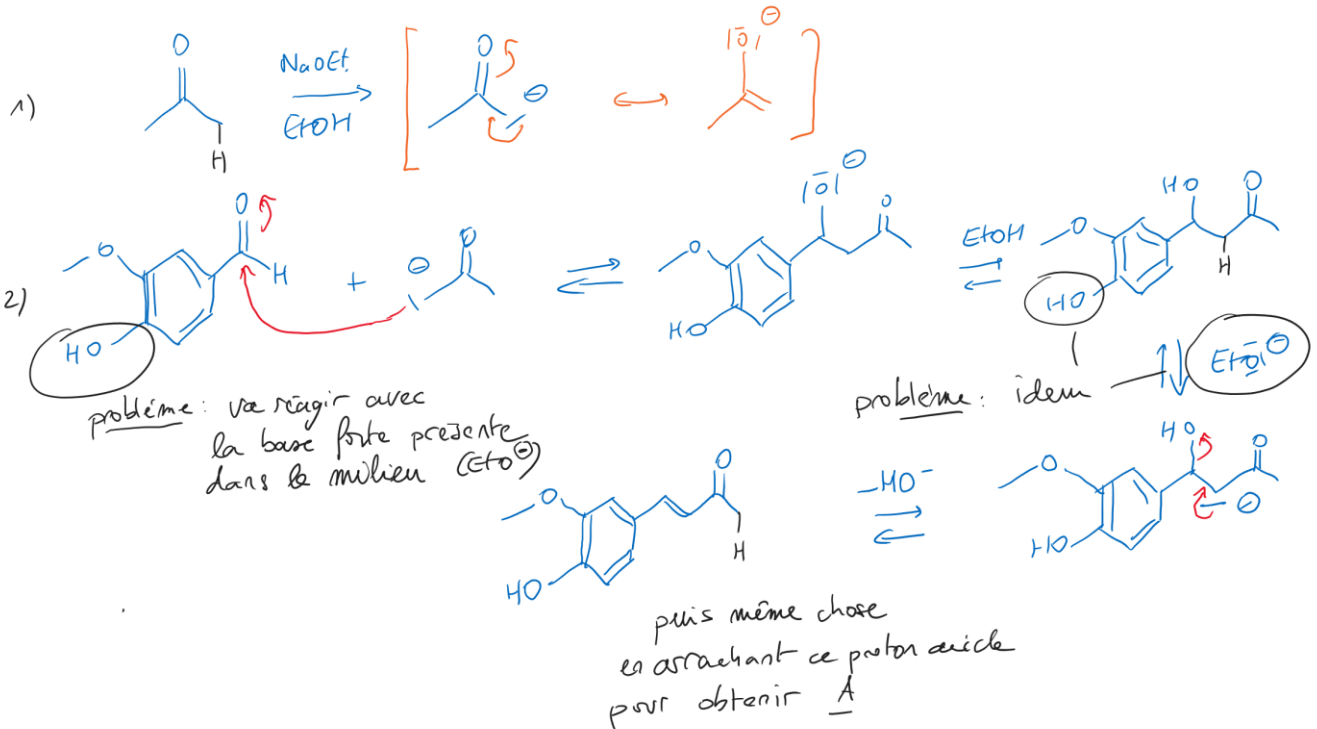 1)
O
H
NaOEt
EtOH
O
⊖
|O̅|
⊖
2)
O
O
H
HO
+
⊖
O
|O̅|
⊖
O
O
HO
EtOH
HO
O
O
H
HO
EtO̅|⊖
problème : va réagir avec
la base forte présente
dans le milieu (EtO⊖)
problème : idem
O
O
H
HO
–HO⁻
HO
O
O
⊖
HO
puis même chose
en arrachant ce proton acide
pour obtenir A